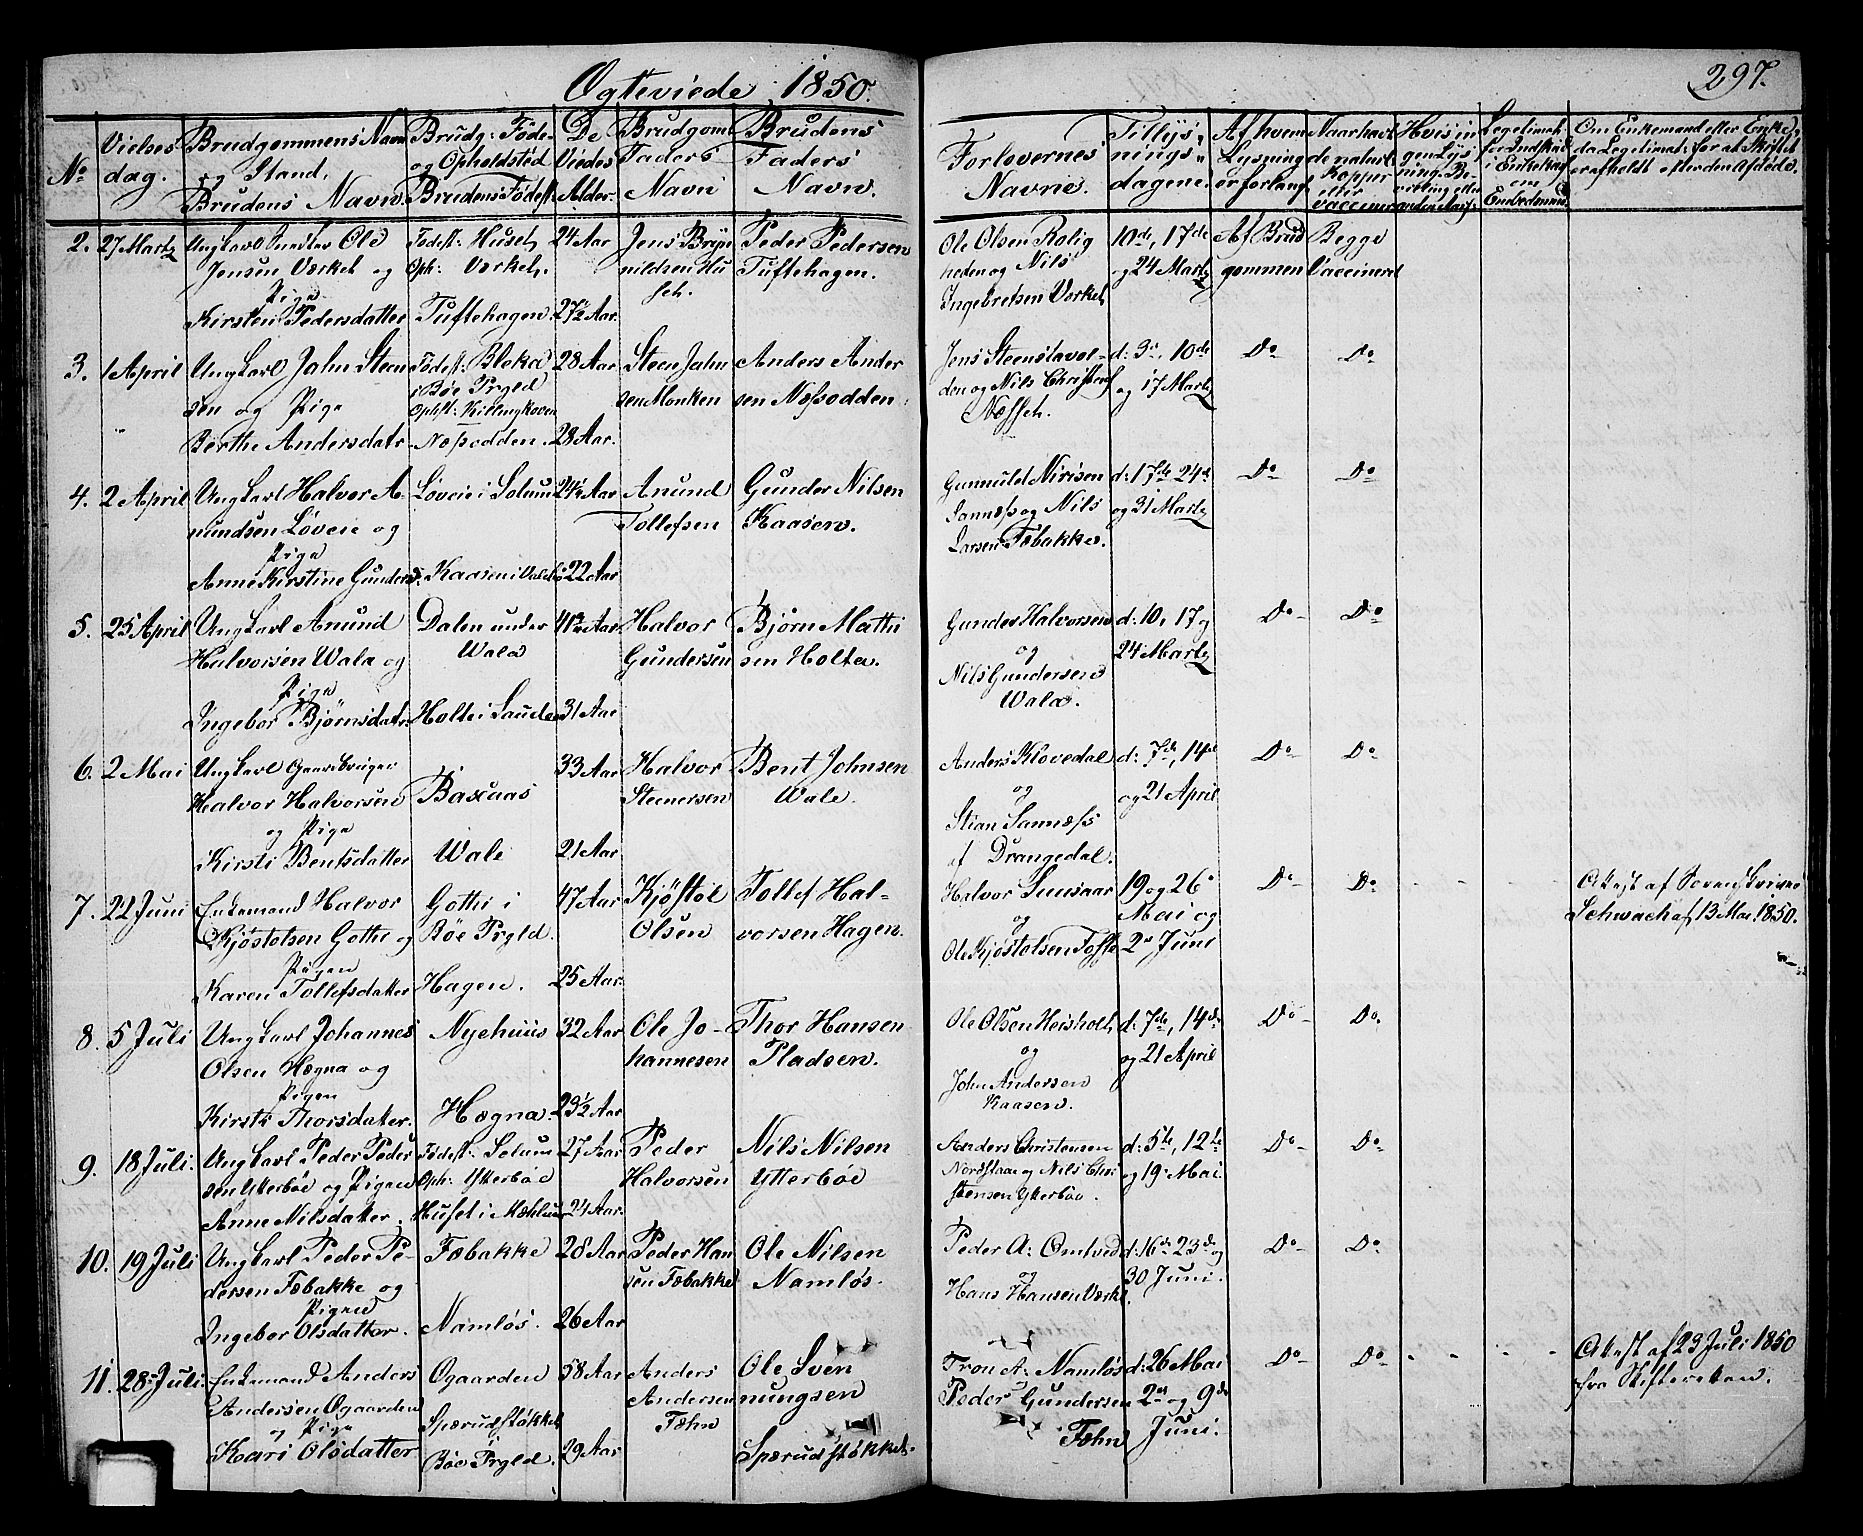 Ogteviede 1850.
297.
No
Vielses dag.
Brudgommens Navn og Stand, Brudens Navn.
Brudg: Føde- og Opholdsted Brudens Fødest:
De Viedes Alder.
Brudgoms Faders Navn
Brudens Faders Navn.
Forlovernes Navne.
Tillys- nings- dagene.
Af hvem Lysning er forlangt
Naar havt de naturl. Kopper eller vaccineret
Hvis in gen Lys ning Be
Legitimat. for Indskud i Enkekas
Om Enkemand eller Enke, da Legitimat: for at Skiftet er afholdt efter den Afdøde.
2. 27 Martz
Ungkarl Ole
Jensen Værket og
Pige
Kirsten Pedersdatter
Fødest: Huset,
Oph: Værket.
Tuftehagen.
24 Aar
27½ Aar.
Jens Bryn
nildsen Hu
seh.
Peder Pedersen
Tuftehagen.
Ole Olsen Rolig
heden og Nils
Ingebretsen Værket
10de, 17de
og 24 Martz
Af Brud
gommen
Begge
Vaccineret
3. 1 April
Ungkarl Jahn Steen
sen og Pige
Berthe Andersdatr
Fødest: Bleka
i Bøe Prgld
Opst: Killingkoven
Næsodden.
28 Aar
28 Aar.
Steen Jahn
sen Monken
Anders Ander
sen Næsodden.
Jens Steenstavol-
den og Nils Christens
Næsseh.
d: 3die, 10de
og 17 Martz
Do
Do
4. 2 April
Ungkarl Halvor A-
nundsen Løveie og
Pige
Anne Kirstine Gunders
Løveie i Solum
d: Kaasen i Valebø
24½ Aar
22 Aar
Anund
Tollefsen
Gunder Nilsen
Kaasen.
Gunnuld Nirisen
Sannæs og Nils
Larsen Fæbakke.
d: 17de 24de
og 31 Martz
Do
Do
5. 25 April
Ungkarl Anund
Halvorsen Wala og
Pige
Ingebor Bjørnsdatr
Dalen under
Wala
Holte i Sauden
41½ Aar.
31 Aar
Halvor
Gundersen
Bjørn Mathi
sen Holta.
Gunder Halvorsen
og
Nils Gundersen
Wala.
d: 10, 17 og
24 Martz
Do
Do
6. 2 Mai
Ungkarl Gaardbruger
Halvor Halvorsen
og Pige
Kirsti Bentsdatter
Baxaas
Wale
33 Aar
21 Aar.
Halvor
Steenersen
Bent Johnsen
Wale.
Anders Klovedal
og
Stian Sannæss
af Drangedal.
d: 7de, 14de
og 21 April
Do
Do
7. 22 Juni
Enkemand Halvor
Kjøstolsen Gothe og
Pigen
Karen Tollefsdatter
Gothe i
Bøe Prgld.
Hagen.
47 Aar
25 Aar.
Kjøstol
Olsen
Tollef Hal-
vorsen Hagen.
Halvor Sunsaar
og
Ole Kjøstolsen Tofte
19 og 26
Mai og
2den Juni
Do
Do
Attest af Sorenskriver
Schwach af 13 Mai 1850.
8. 5 Juli
Ungkarl Johannes
Olsen Hægna og
Pigen
Kirsti Thorsdatter.
Nyehuus
Hægna.
32 Aar
23½ Aar
Ole Jo-
hannesen
Thor Hansen
Pladsen.
Ole Olsen Heisholt
og
John Andersen
Kaasen.
d: 7de, 14de
og 21 April
Do
Do.
9. 18 Juli.
Ungkarl Peder Peder
sen Ytterbøe og Pigen
Anne Nilsdatter.
Fødest: Solum
Oph: Ytterbøe
Huset i Mæhlum
27 Aar
24 Aar.
Peder
Halvorsen
Nils Nilsen
Ytterbøe
Anders Christensen
Nordstaae og Nils Chri
stensen Ytterbøe.
d: 5te, 12te
og 19 Mai.
Do
Do
10. 19 Juli
Ungkarl Peder Pe-
dersen Fæbakke og
Pigen
Ingebor Olsdatter.
Fæbakke
Namløs.
28 Aar
26 Aar
Peder Han
sen Fæbakke
Ole Nilsen
Namløs.
Peder A: Omtved
og
Hans Hansen Værket.
d: 16de 23de og
30 Juni.
Do
Do
11. 28 Juli
Enkemand Anders
Andersen Ogaarden
og Pige
Kari Olsdatter
Ogaarden
Spærudstøkket
Bøe Prgld.
58 Aar
29 Aar.
Anders
Andersen
Fæhn
Ole Sven
nungsen
Spærudstøkket.
Tron A: Namløs
Peder Gundersen
Fæhn
d: 26 Mai
2den og 9de
Juni.
Do
Do
Attest af 23 Juli 1850
fra Skifteretten.